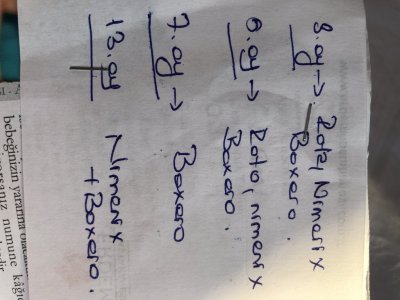 3.ay → Rota, Nimenix
Boxero.
ay → Rota, nimenix
Boxero.
7.ay → Boxero
13.ay Nimenix
+ Boxero.
bebeğinizin yararına
numune